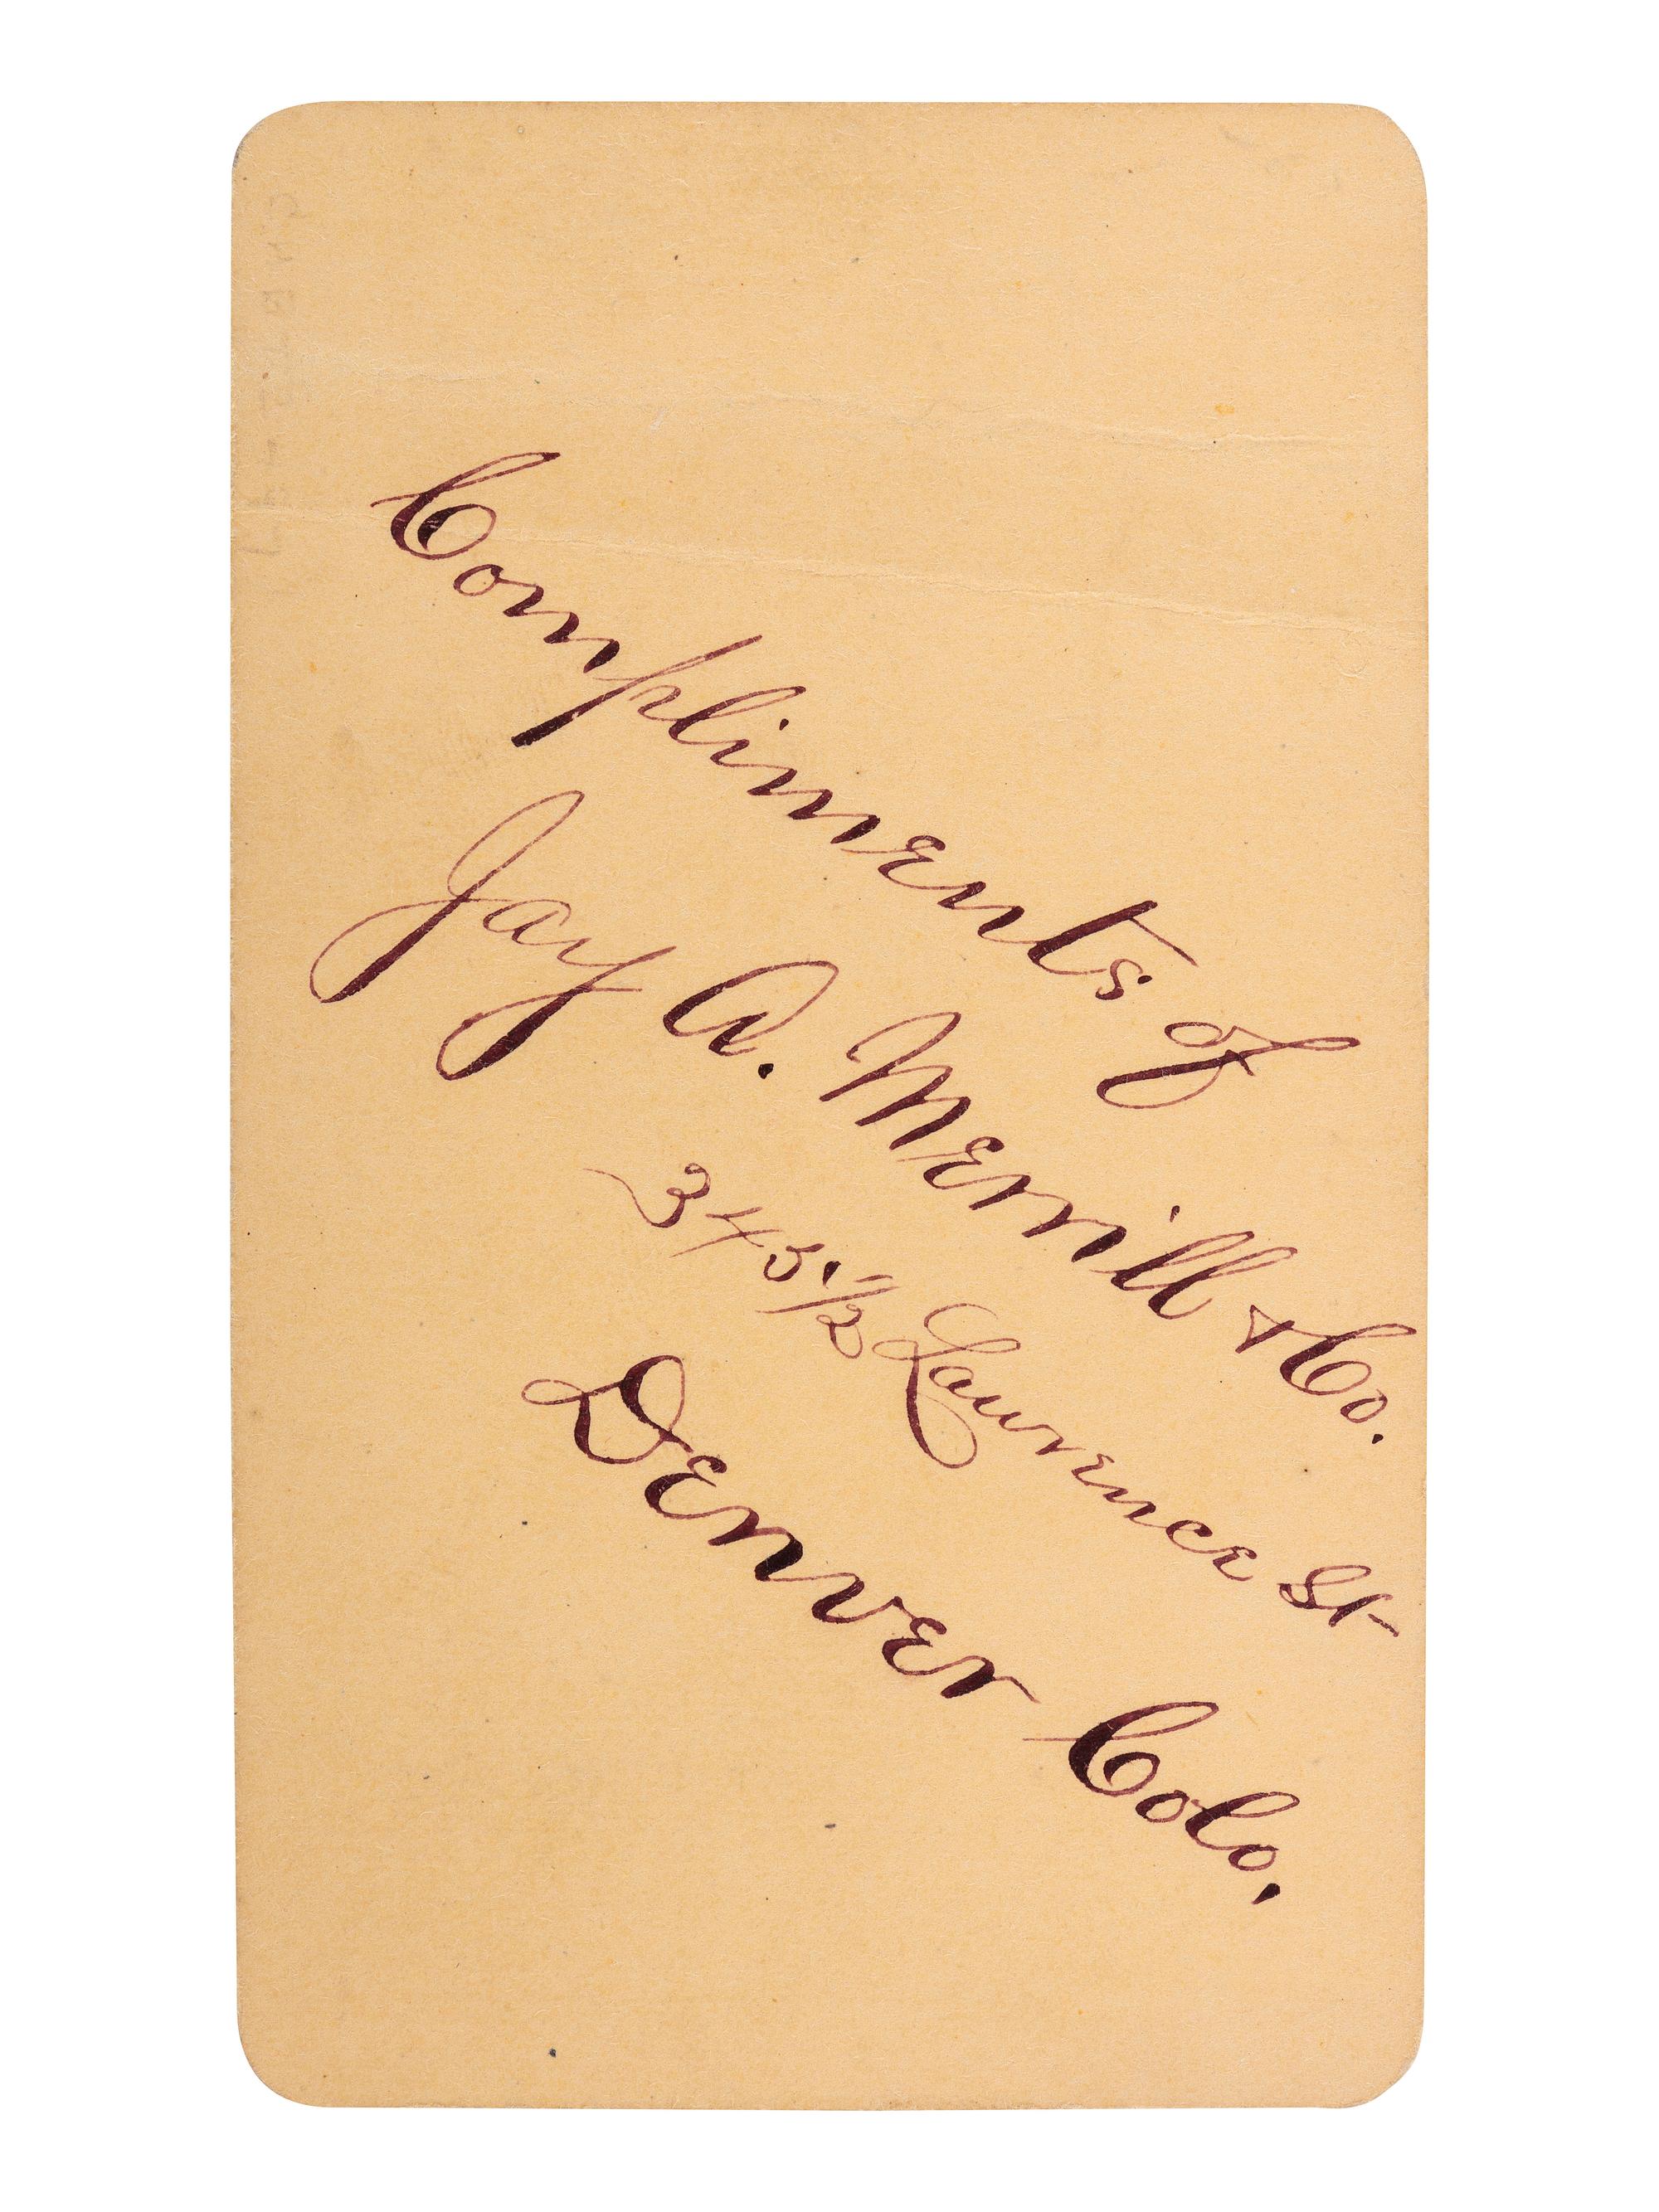 Compliments of
Jay A. Merrill & Co.
345 1/2 Lawrence St
Denver Colo.